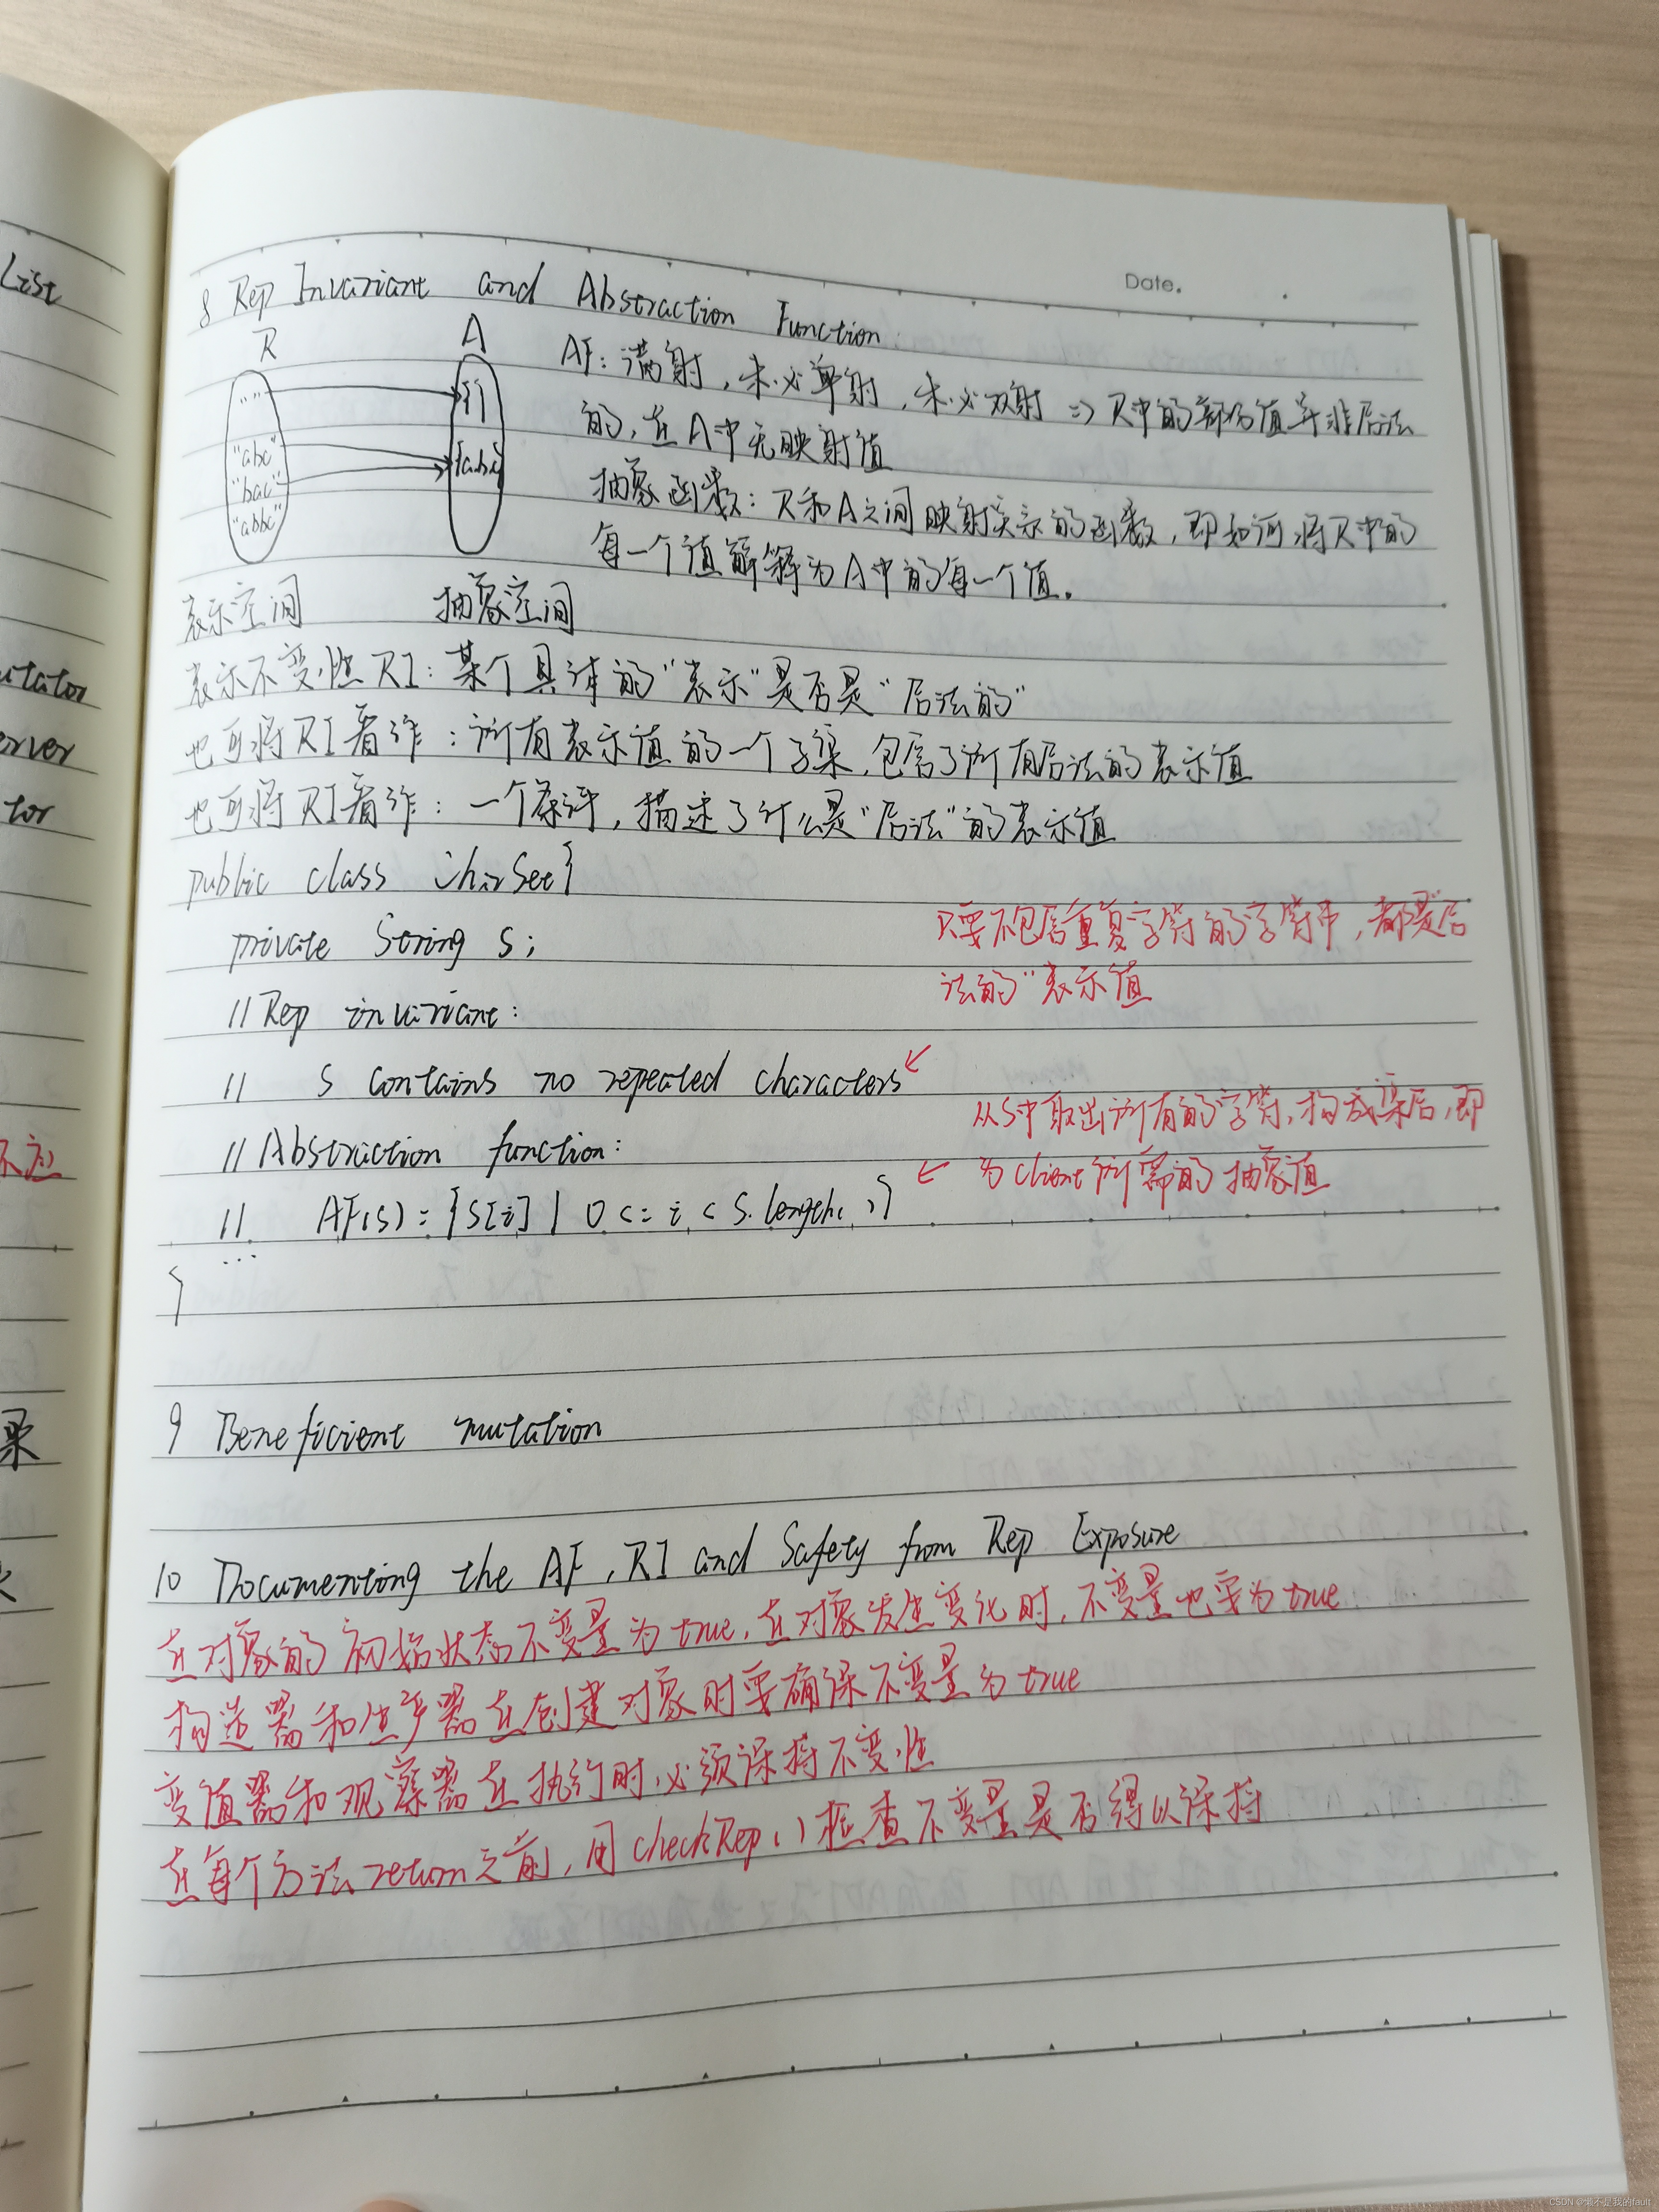 List
utator
erver
tor
不应
录
Date.
8 Rep Invariant and Abstraction Function
R A
AF: 满射, 未必单射, 未必双射 => R中的部分值并非合法
的, 在A中无映射值
"" { }
"abc" {a,b,c}
"bac"
"abbc"
抽象函数: R和A之间映射关系的函数, 即如何将R中的
每一个值解释为A中的每一个值.
表示空间 抽象空间
表示不变性RI: 某个具体的"表示"是否是"合法的"
也可将RI看作: 所有表示值的一个子集, 包含了所有合法的表示值
也可将RI看作: 一个条件, 描述了什么是"合法"的表示值
public class CharSet {
private String s;
只要不包含重复字符的字符串, 都是合
法的"表示值
// Rep invariant:
// s contains no repeated characters
// Abstraction function:
从s中取出所有的字符, 构成集合, 即
为client所需的抽象值
// AF(s) = {s[i] | 0 <= i < s.length()}
...
}
9 Beneficient mutation
10 Documenting the AF, RI and Safety from Rep Exposure
在对象的初始状态不变量为true, 在对象发生变化时, 不变量也要为true
构造器和生产器在创建对象时要确保不变量为true
变值器和观察器在执行时必须保持不变性
在每个方法return之前, 用checkRep()检查不变量是否得以保持
CSDN @懒不是我的fault